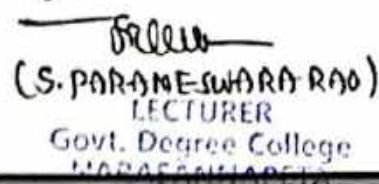 (S. PARAMESWARA RAO)
LECTURER
Govt. Degree College